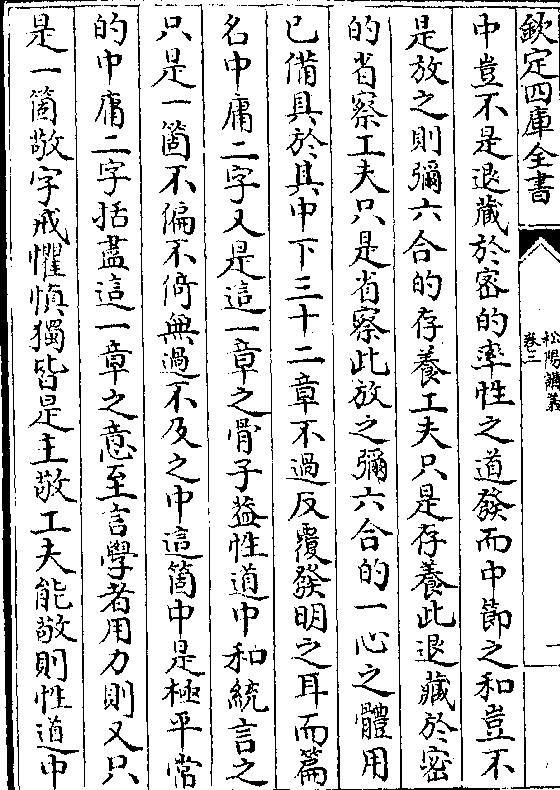 欽定四庫全書
松陽講義
卷三
中豈不是退藏於密的率性之道發而中節之和豈不
是放之則彌六合的存養工夫只是存養此退藏於密
的省察工夫只是省察此放之彌六合的一心之體用
已備具於其中下三十二章不過反覆發明之耳而篇
名中庸二字又是這一章之骨子蓋性道中和統言之
只是一箇不偏不倚無過不及之中這箇中是極平常
的中庸二字括盡這一章之意至言學者用力則又只
是一箇敬字戒懼慎獨皆是主敬工夫能敬則性道中